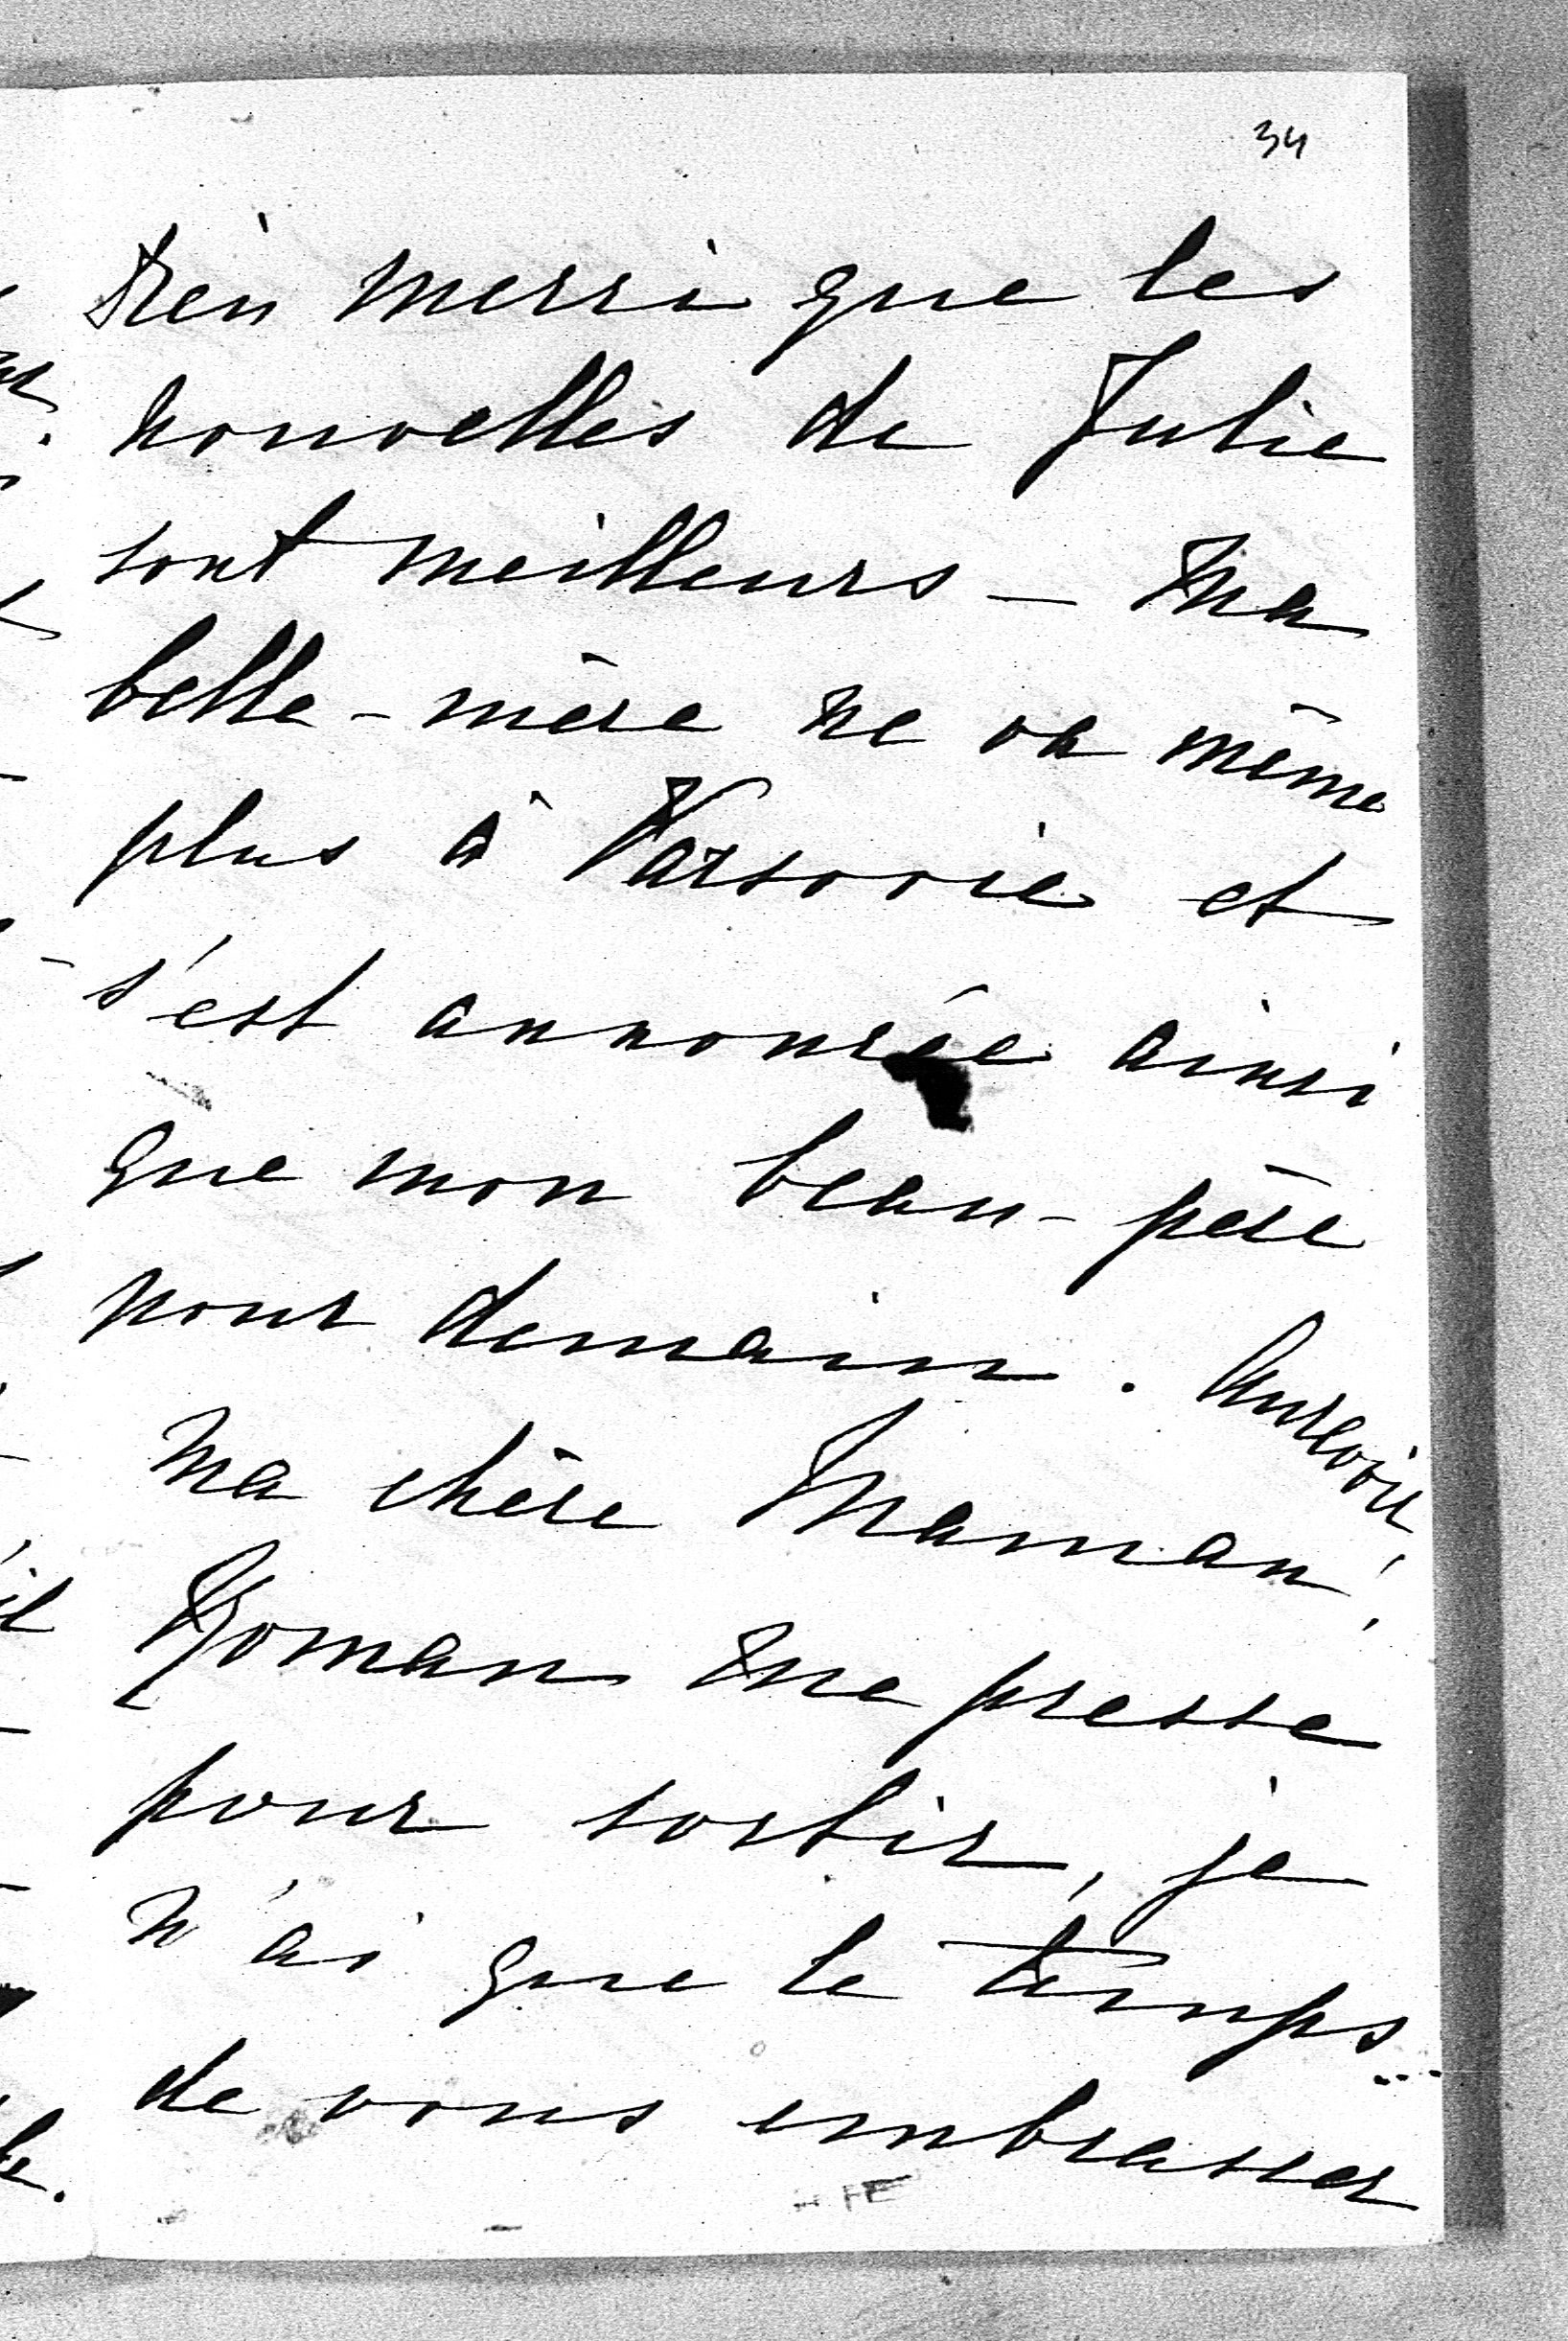 34
Dieu merci que les
nouvelles de Julie
sont meilleurs – Ma
belle-mère ne va même
plus à Varsovie et
s'est annoncée ainsi
que mon beau-père
pour demain. Aurevoir
ma chère Maman!
Roman me presse
pour sortir, je
n'ai que le temps
de vous embrasser